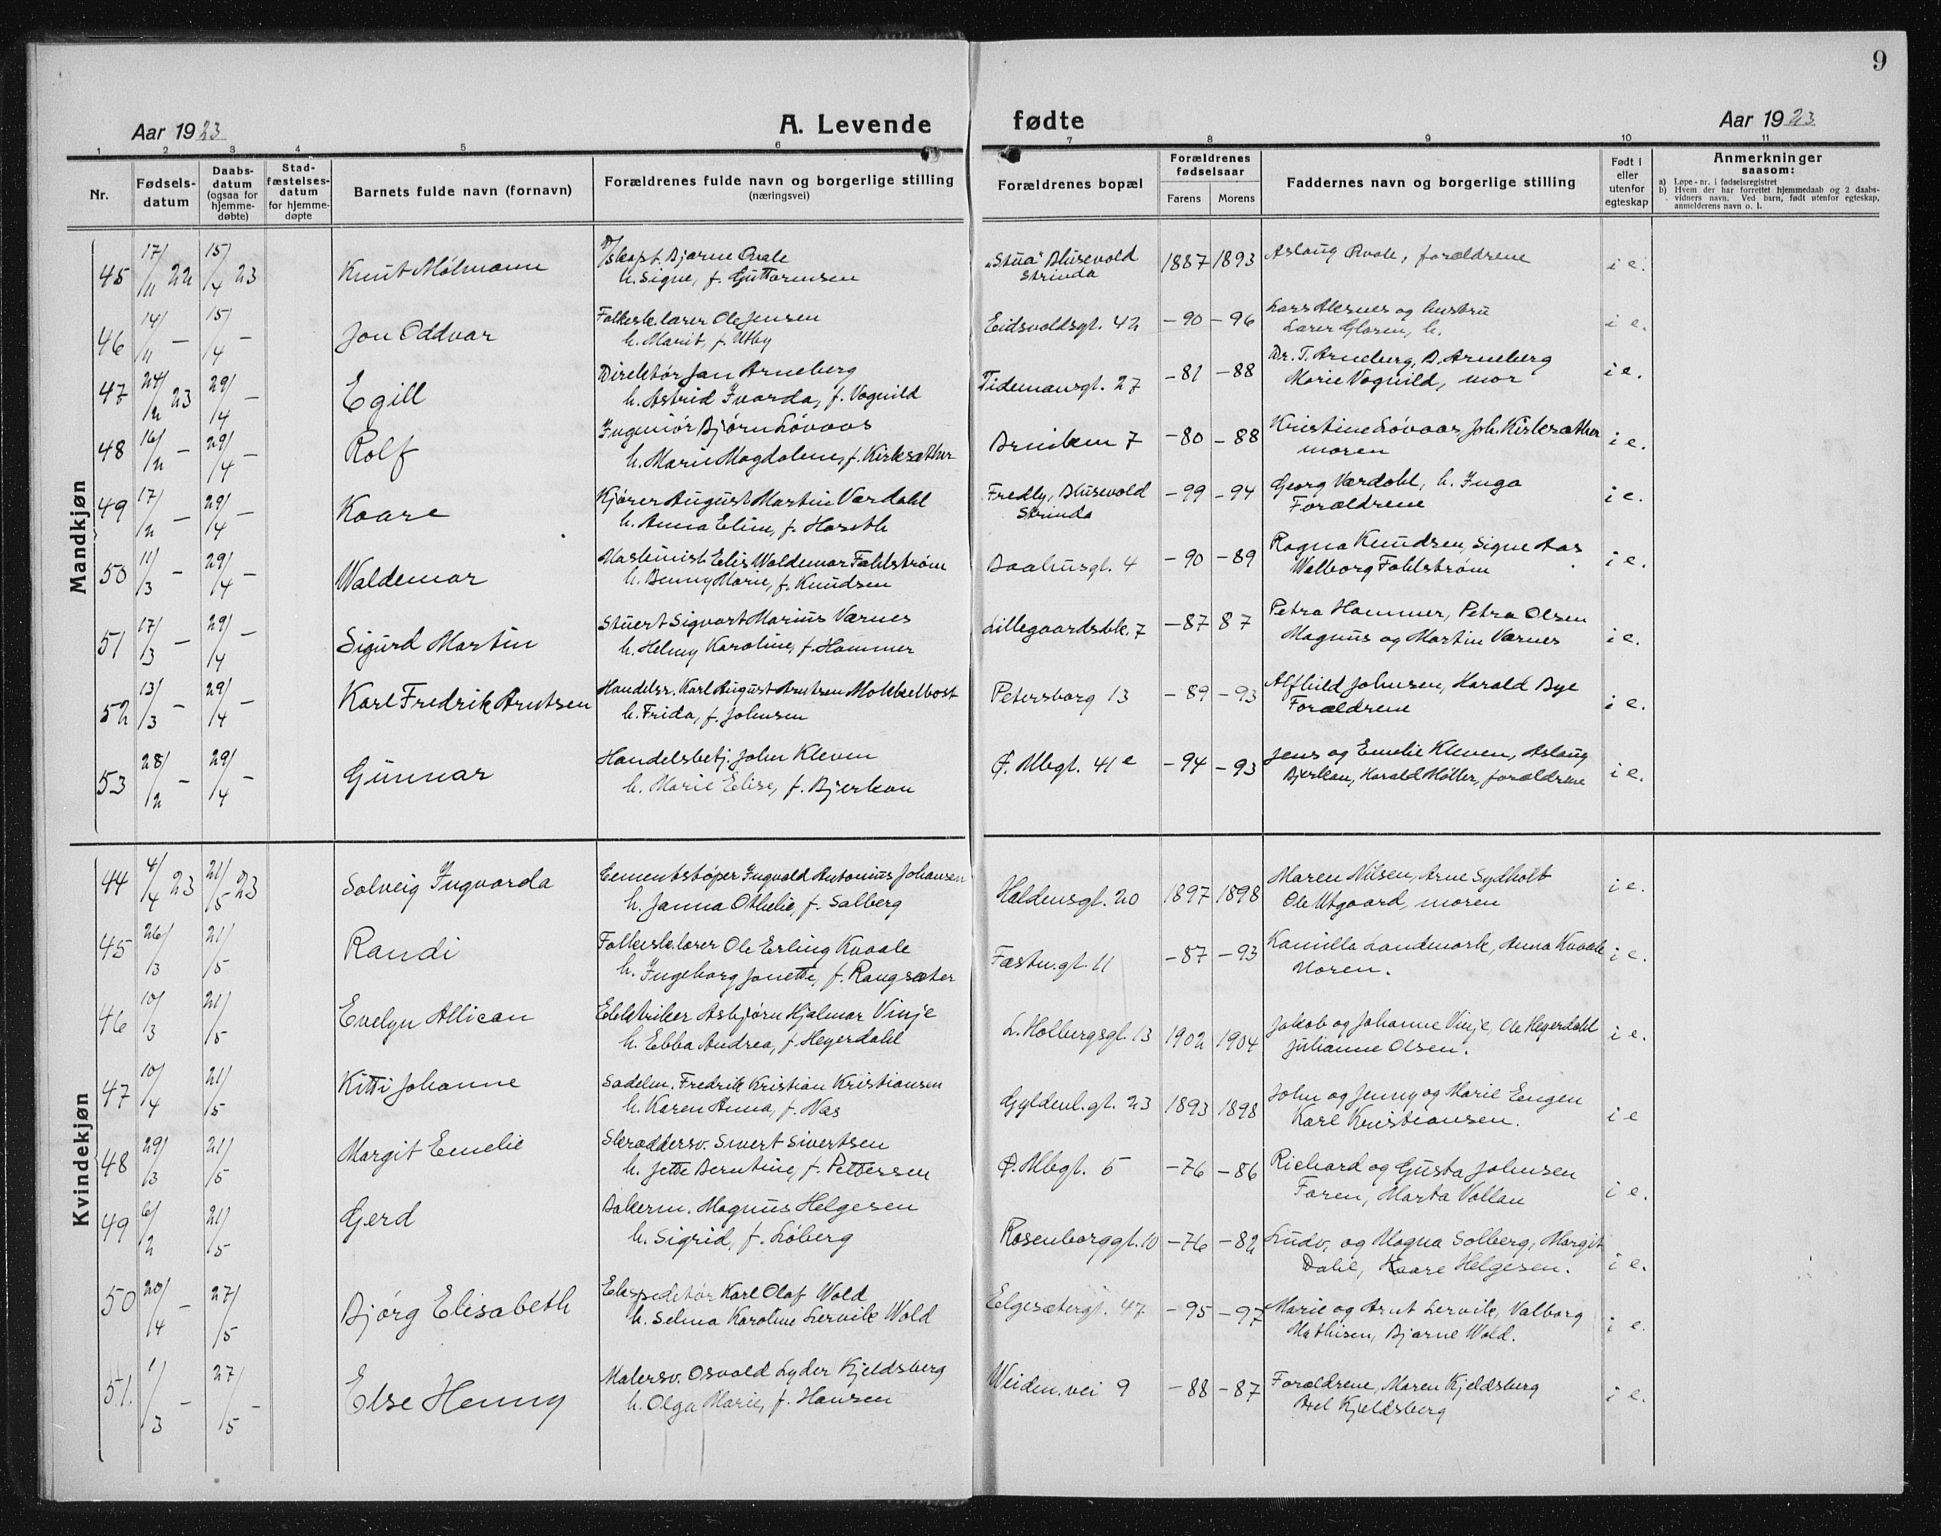 9
Aar 1923 A. Levende fødte Aar 1923
1 2 3 4 5 6 7 8 9 10 11
Nr. Fødsels-datum Daabs-datum (ogsaa for hjemme-døbte) Stad-fæstelses-datum for hjemme-døpte Barnets fulde navn (fornavn) Forældrenes fulde navn og borgerlige stilling (næringsvei) Forældrenes bopæl Forældrenes fødselsaar Farens Morens Faddernes navn og borgerlige stilling Født i eller utenfor egteskap Anmerkninger saasom:
a) Løpe-nr. i fødselsregistret
b) Hvem der har forrettet hjemmedaab og 2 daabs-vidners navn. Ved barn, født utenfor egteskap, anmelderens navn o. l.
Mandkjøn
45 17/11 22 15/4 23 Knut Mølmann D/skapt. Bjarne Qvale „Stua" Blusevold 1887 1893 Aslaug Qvale, forældrene i e.
h. Signe, f. Guttormsen Strinda
46 14/11 – 15/4 – Jon Oddvar Folkesk.lærer Ole Jensen Eidsvoldsgt. 42 –90 –96 Lars Aksnes og hustru i e.
h. Marit, f. Utby Lærer Gløsen, h.
47 24/2 23 29/4 – Egill Direktør Jan Arneberg Tidemansgt. 27 –81 –88 Dr. T. Arneberg, D. Arneberg i e.
h. Astrid Ivarda, f. Vognild Marie Vognild, mor
48 16/2 – 29/4 – Rolf Ingeniør Bjørn Løvaas Bruiken 7 –80 –88 Kristine Løvaas Joh. Kirksæther i e.
h. Marie Magdalene, f. Kirksæther moren
49 17/2 – 29/4 – Kaare Kjører August Martin Værdahl Fredly, Blusevold –99 –94 Georg Værdahl, h. Inga i e.
h. Anna Eline, f. Harseth Strinda Forældrene
50 11/3 – 29/4 – Waldemar Maskinist Elis Waldemar Fahlstrøm Baahusgt. 4 –90 –89 Ragna Knudsen, Signe Aas i e.
h. Benny Marie, f. Knudsen Walborg Fahlstrøm
51 17/3 – 29/4 – Sigurd Martin Stuert Sigvart Marius Værnes Lillegaardsbk. 7 –87 87 Petra Hammer, Petra Olsen i e.
h. Helmy Karoline, f. Hammer Magnus og Martin Værnes
52 13/3 – 29/4 – Karl Fredrik Arntsen Handelsr. Karl August Arntsen Mokkelbost Petersborg 13 –89 –93 Alfhild Johnsen, Harald Bye i e.
h. Frida, f. Johnsen Forældrene
53 28/2 – 29/4 – Gunnar Handelsbetj. John Kleven Ø. Mbgt. 41e –94 –93 Jens og Emelie Kleven, Aslaug i e.
h. Marie Elise, f. Bjerkan Bjerkan, Harald Møller, forældrene
Kvindekjøn
44 4/4 23 21/5 23 Solveig Ingvarda Cementstøper Ingvald Antonius Johansen Haldensgt. 20 1897 1898 Maren Nilsen, Arne Sydholt i e.
h. Janna Othelie, f. Salberg Ole Utgaard, moren
45 26/3 21/5 Randi Folkesk.lærer Ole Erling Kvaale Fæstn.gt. 11 –87 –93 Kamilla Landmark, Anna Kvaale i e.
h. Ingeborg Jonette, f. Rangsæter Moren.
46 10/3 21/5 Evelyn Allican Elektriker Asbjørn Hjalmar Vinje L. Holbergsgt. 13 1902 1904 Jakob og Johanne Vinje, Ole Heyerdahl i e.
h. Ebba Andrea, f. Heyerdahl Julianne Olsen.
47 10/4 21/5 Kitti Johanne Sadelm. Fredrik Kristian Kristiansen Gyldenl.gt. 23 1893 1898 John og Jenny og Marie Engen i e
h. Karen Anna, f. Næs Karl Kristiansen.
48 29/3 21/5 Margit Emelie Skræddersv. Sivert Sivertsen Ø. Mbgt. 5 –76 –86 Richard og Gusta Johnsen i e.
h. Jette Berntine, f. Pettersen Faren, Marta Vollan
49 6/2 21/5 Gerd Bakerm. Magnus Helgesen Rosenborggt. 10 –76 –82 Ludv. og Magna Solberg, Margit i e.
h. Sigrid, f. Løberg Dalie, Kaare Helgesen.
50 20/4 – 27/5 Bjørg Elisabeth Ekspeditør Karl Olaf Wold Elgesætergt. 47 –95 –97 Marie og Arnt Lervik, Valborg i e.
h. Selma Karoline Lervik Wold Mathisen, Bjarne Wold.
51. 1/3 – 27/5 – Else Henny Malersv. Osvald Lyder Kjeldsberg Weiden.vei 9 –88 –87 Forældrene, Maren Kjeldsberg i e.
h. Olga Marie, f. Hansen Axel Kjeldsberg